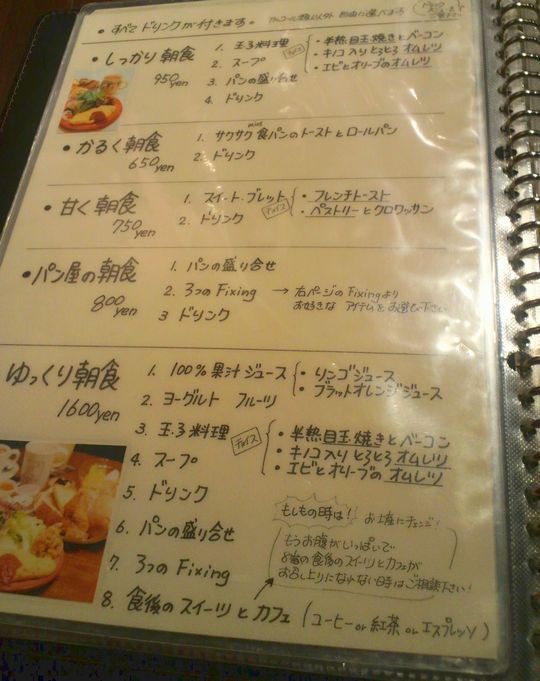 ・すべてドリンクが付きます。 アルコール類以外 自由に選べます
・しっかり朝食
950yen
1. 玉子料理 チョイス
・半熟目玉焼きとベーコン
・キノコ入りとろとろオムレツ
・エビとオリーブのオムレツ
2. スープ
3. パンの盛り合せ
4. ドリンク
・かるく朝食
650yen
1. サクサクmini食パンのトーストとロールパン
2. ドリンク
・甘く朝食
750yen
1. スイート・ブレット チョイス
・フレンチトースト
・ペストリーとクロワッサン
2. ドリンク
・パン屋の朝食
800yen
1. パンの盛り合せ
2. 3つのFixing → 右ページのFixingより
お好きな アイテムを お選び下さい
3 ドリンク
ゆっくり朝食
1600yen
1. 100%果汁ジュース
・リンゴジュース
・ブラットオレンジジュース
2. ヨーグルト フルーツ
3. 玉子料理 チョイス
・半熟目玉焼きとベーコン
・キノコ入りとろとろオムレツ
・エビとオリーブのオムレツ
4. スープ
5. ドリンク
6. パンの盛り合せ
7. 3つの Fixing
8. 食後のスイーツとカフェ (コーヒー or 紅茶 or エスプレッソ)
もしもの時は! お土産にチェンジ!
もうお腹がいっぱいで
8番の食後のスイーツとカフェが
お召し上りになれない時はご相談下さい!